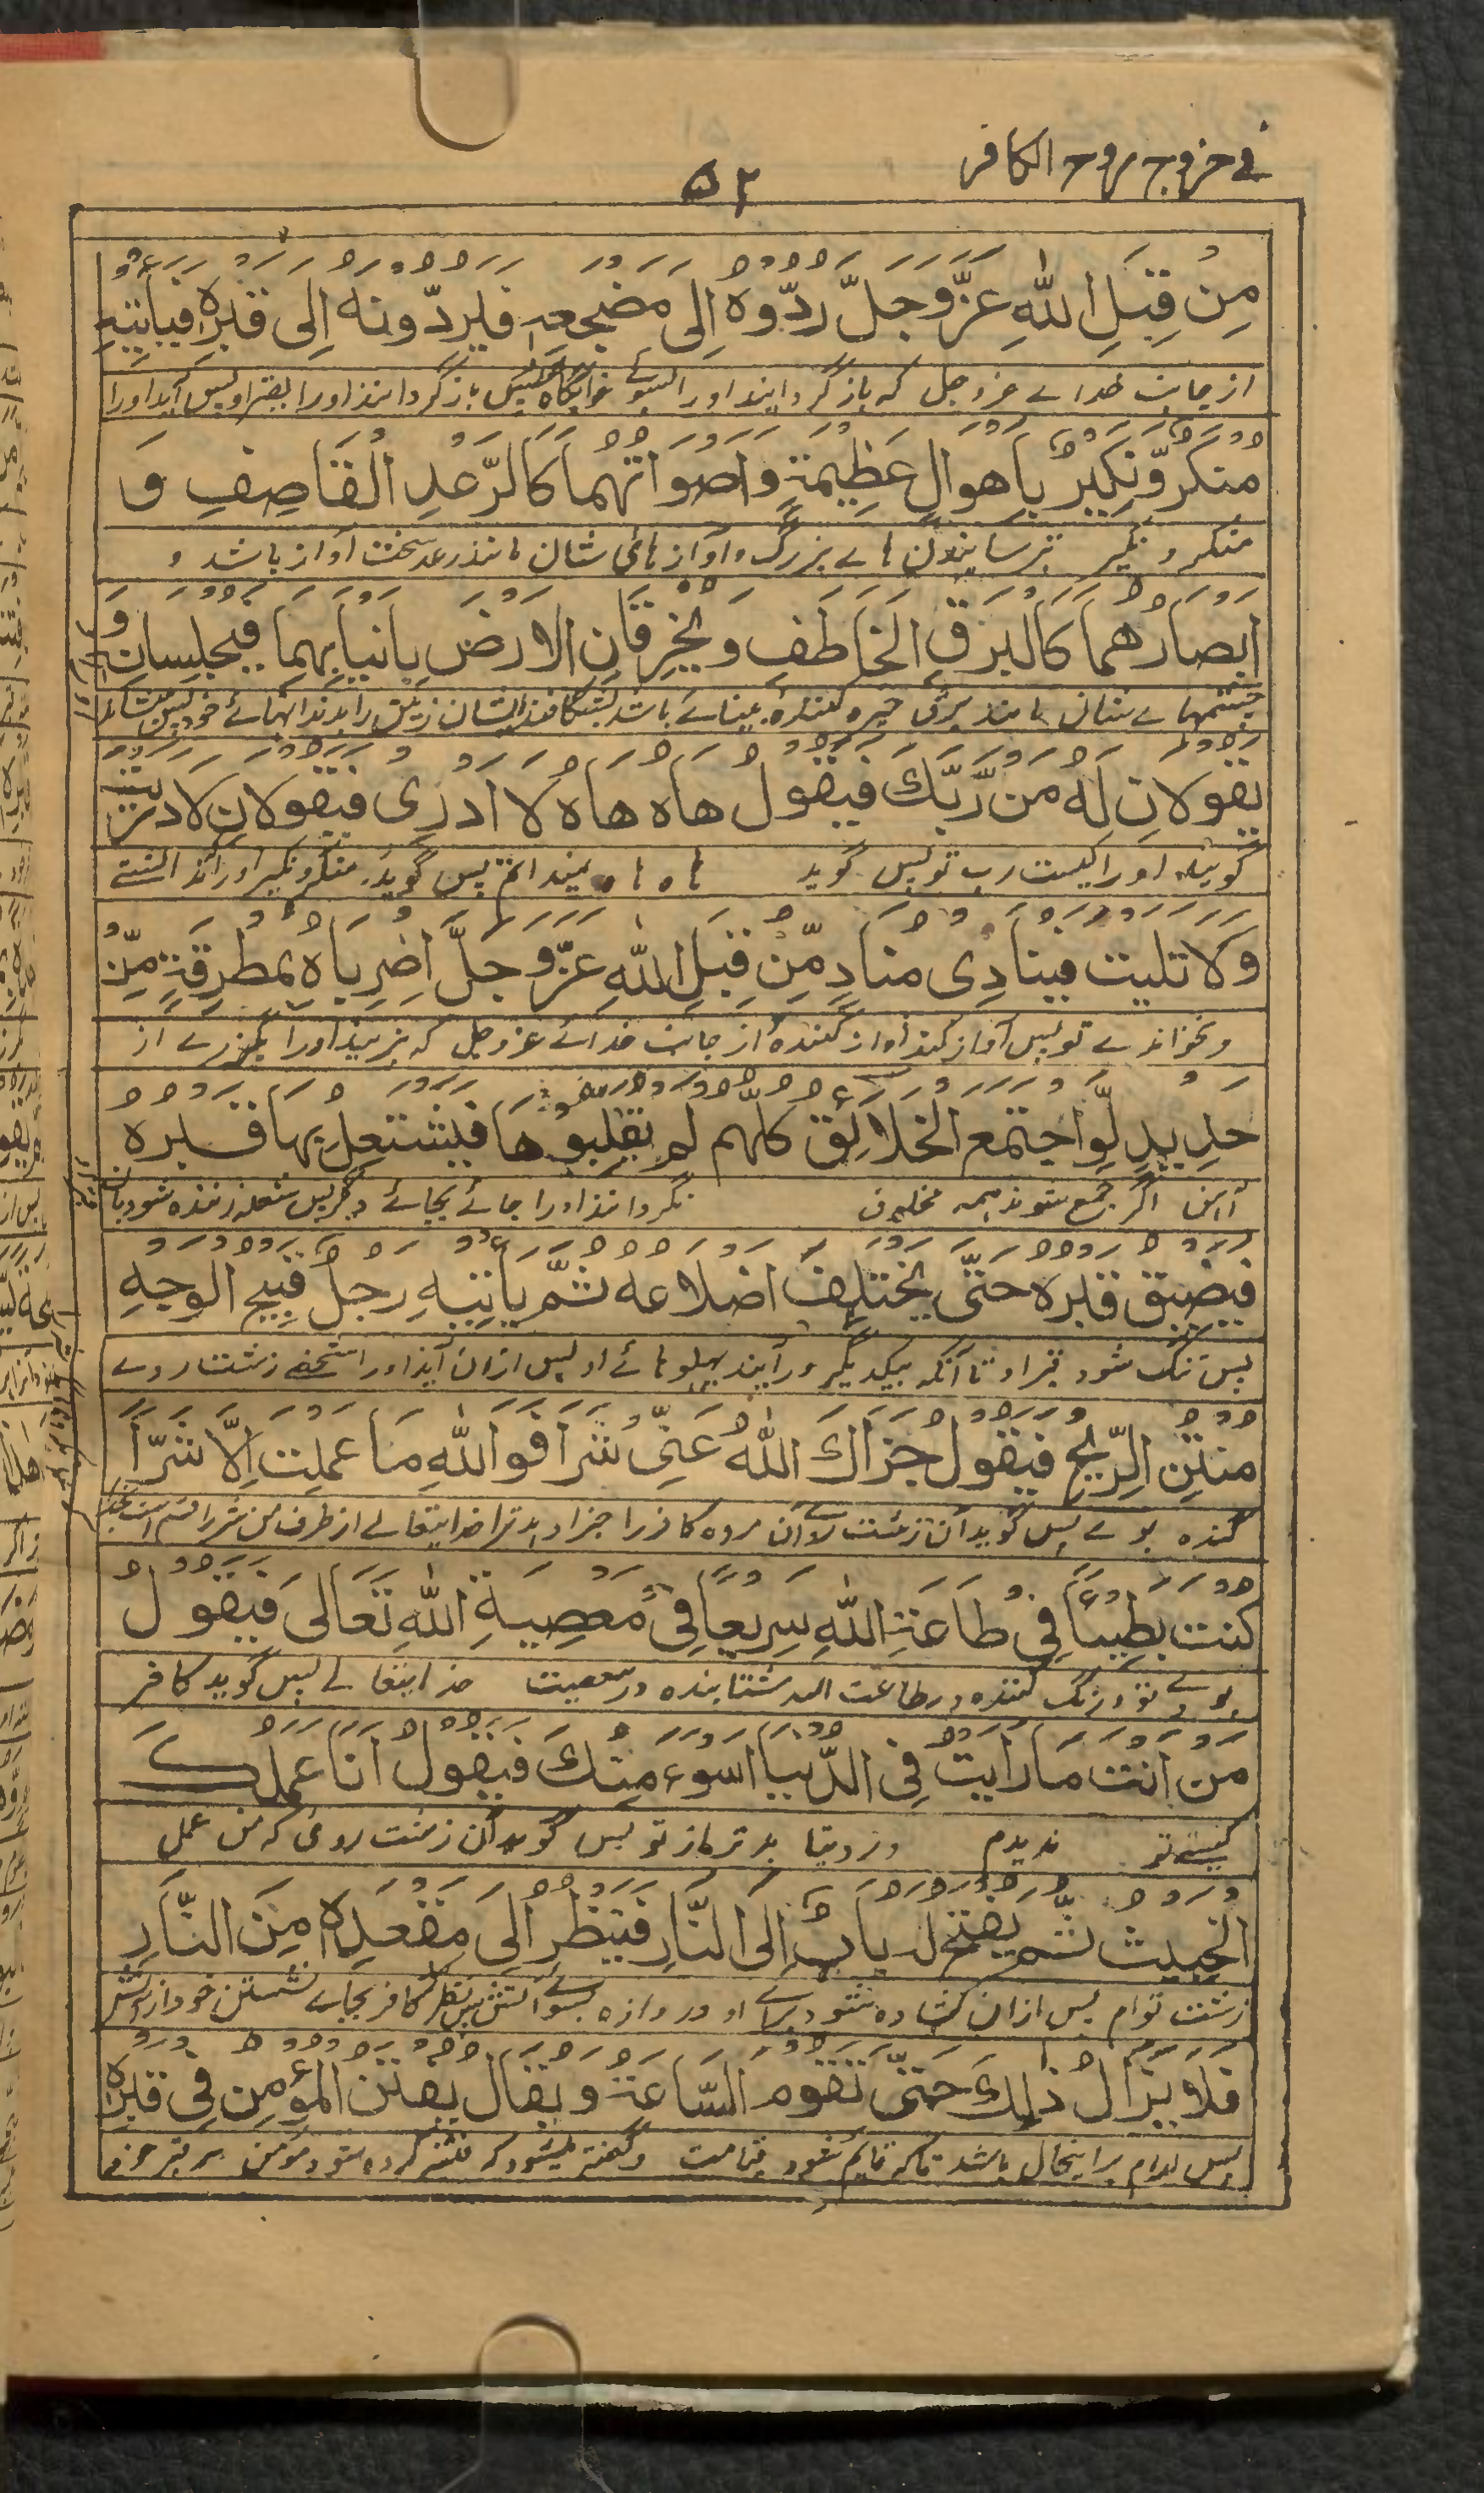 في خروج روح الكافر
۵۲
مِنْ قِبَلِ اللهِ عَزَّ وَجَلَّ رُدُّوْهُ اِلٰى مَضْجَعِهٖ فَيَرُدُّوْنَهٗ اِلٰى قَبْرِهٖ فَيَأْتِيْهِ
از جانب خداے عزوجل که بازگردانید اورا بسوئے خوابگاه پس بازگردانند اورا بقبر او پس آید اورا
مُنْكَرٌ وَّنَكِيْرٌ بِاَهْوَالٍ عَظِيْمَةٍ وَاَصْوَاتُهُمَا كَالرَّعْدِ الْقَاصِفِ وَ
منکر و نکیر بترسانیدن هاے بزرگ و آوازهائی شان مانند رعد سخت آواز باشد و
اَبْصَارُهُمَا كَالْبَرْقِ الْخَاطِفِ وَيَخْرِقَانِ الْاَرْضَ بِاَنْيَابِهِمَا فَيُجْلِسَانِهٖ وَ
چشمهاے شان مانند برق خیره کننده بینائے باشد بشگافند ایشان زمین را بدندانهائے خود پس
يَقُوْلَانِ لَهٗ مَنْ رَّبُّكَ فَيَقُوْلُ هَاهْ هَاهْ لَا اَدْرِىْ فَيَقُوْلَانِ لَا دَرَيْتَ
گویند اورا کیست رب تو پس گوید ہاہ ہاہ نمیدانم پس گویند منکر و نکیر اورا نه دانستے
وَلَا تَلَيْتَ فَيُنَادِىْ مُنَادٍ مِّنْ قِبَلِ اللهِ عَزَّ وَجَلَّ اِضْرِبَاهُ بِمِطْرَقَةٍ مِّنْ
و نخواندے تو پس آواز کند آواز کننده از جانب خدائے عزوجل که بزنید اورا بگرزے از
حَدِيْدٍ لَّوِ اجْتَمَعَ الْخَلَائِقُ كُلُّهُمْ لَمْ يُقَلِّبُوْهَا فَيَشْتَعِلُ بِهَا قَبْرُهٗ
آهن اگر جمع شوند همه مخلوق نگردانند اورا جائے بجائے دیگر پس شعله زننده شود بآن
فَيُضَيَّقُ قَبْرُهٗ حَتّٰى يَخْتَلِفَ اَضْلَاعُهٗ ثُمَّ يَأْتِيْهِ رَجُلٌ قَبِيْحُ الْوَجْهِ
پس تنگ شود قبر او تا آنکه بیکدیگر درآیند پہلوہائے او پس ازان آید اورا شخصے زشت روے
مُنْتِنُ الرِّيْحِ فَيَقُوْلُ جَزَاكَ اللهُ عَنِّىْ شَرًّا فَوَ اللهِ مَا عَمِلْتَ اِلَّا شَرًّا
گنده بوے پس گوید آن زشت رو آن مرده کافر را جزا دہد ترا خدایتعالے از طرف من شر را
كُنْتَ بَطِيْئًا فِىْ طَاعَةِ اللهِ سَرِيْعًا فِىْ مَعْصِيَةِ اللهِ تَعَالٰى فَيَقُوْلُ
بودے تو درنگ کننده در طاعت الله شتابنده در معصیت خدایتعالے پس گوید کافر
مَنْ اَنْتَ مَا رَاَيْتُ فِى الدُّنْيَا اَسْوَءَ مِنْكَ فَيَقُوْلُ اَنَا عَمَلُكَ
کیستی تو ندیدم در دنیا بدتر از تو پس گوید آن زشت روئ که من عمل
الْخَبِيْثُ ثُمَّ يُفْتَحُ لَهٗ بَابٌ اِلَى النَّارِ فَيَنْظُرُ اِلٰى مَقْعَدِهٖ مِنَ النَّارِ
زشت توام پس ازان کشاده شود براے او دروازه بسوے آتش پس نظر کند کافر بجاے نشستن خود از آتش
فَلَا يَزَالُ ذٰلِكَ حَتّٰى تَقُوْمَ السَّاعَةُ وَيُقَالُ يُفْتَنُ الْمُؤْمِنُ فِىْ قَبْرِهٖ
پس مدام براینحال باشد تا که قایم شود قیامت و گفته میشود که فتنه کرده شود مومن در قبر خود